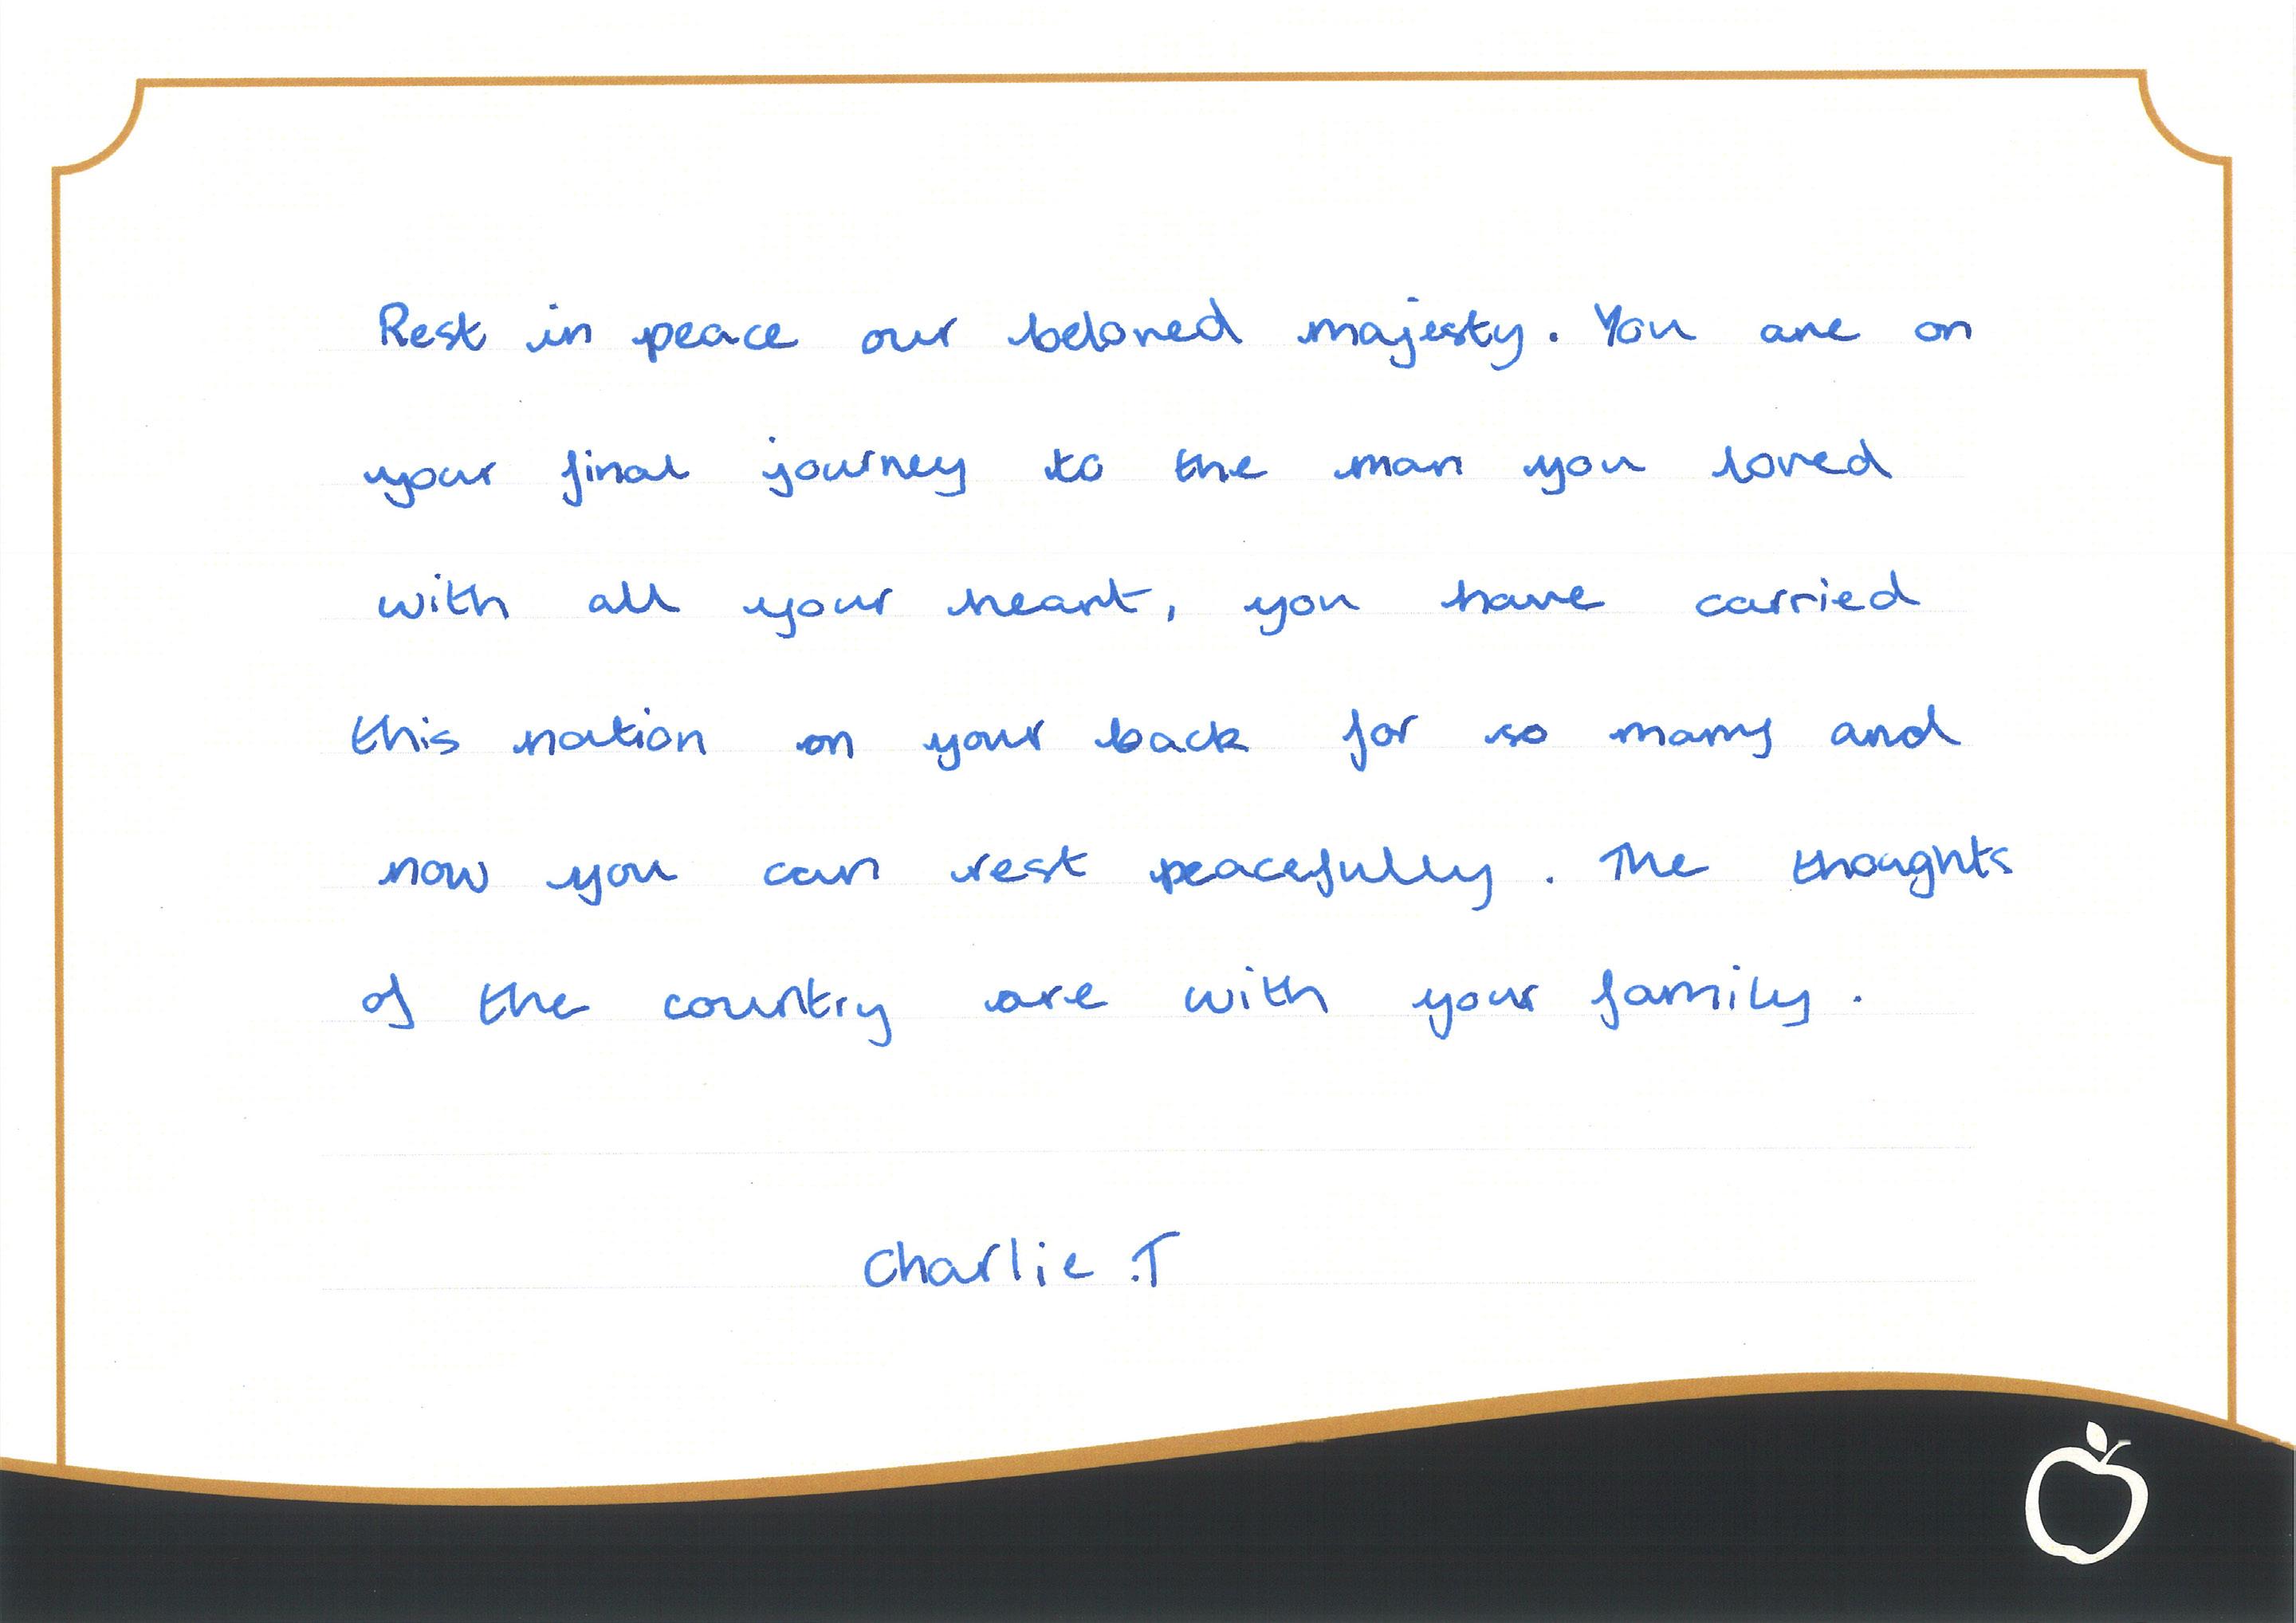 Rest in peace our beloved majesty. You are on
your final journey to the man you loved
with all your heart, you have carried
this nation on your back for so many and
now you can rest peacefully. The thoughts
of the country are with your family.
Charlie .T